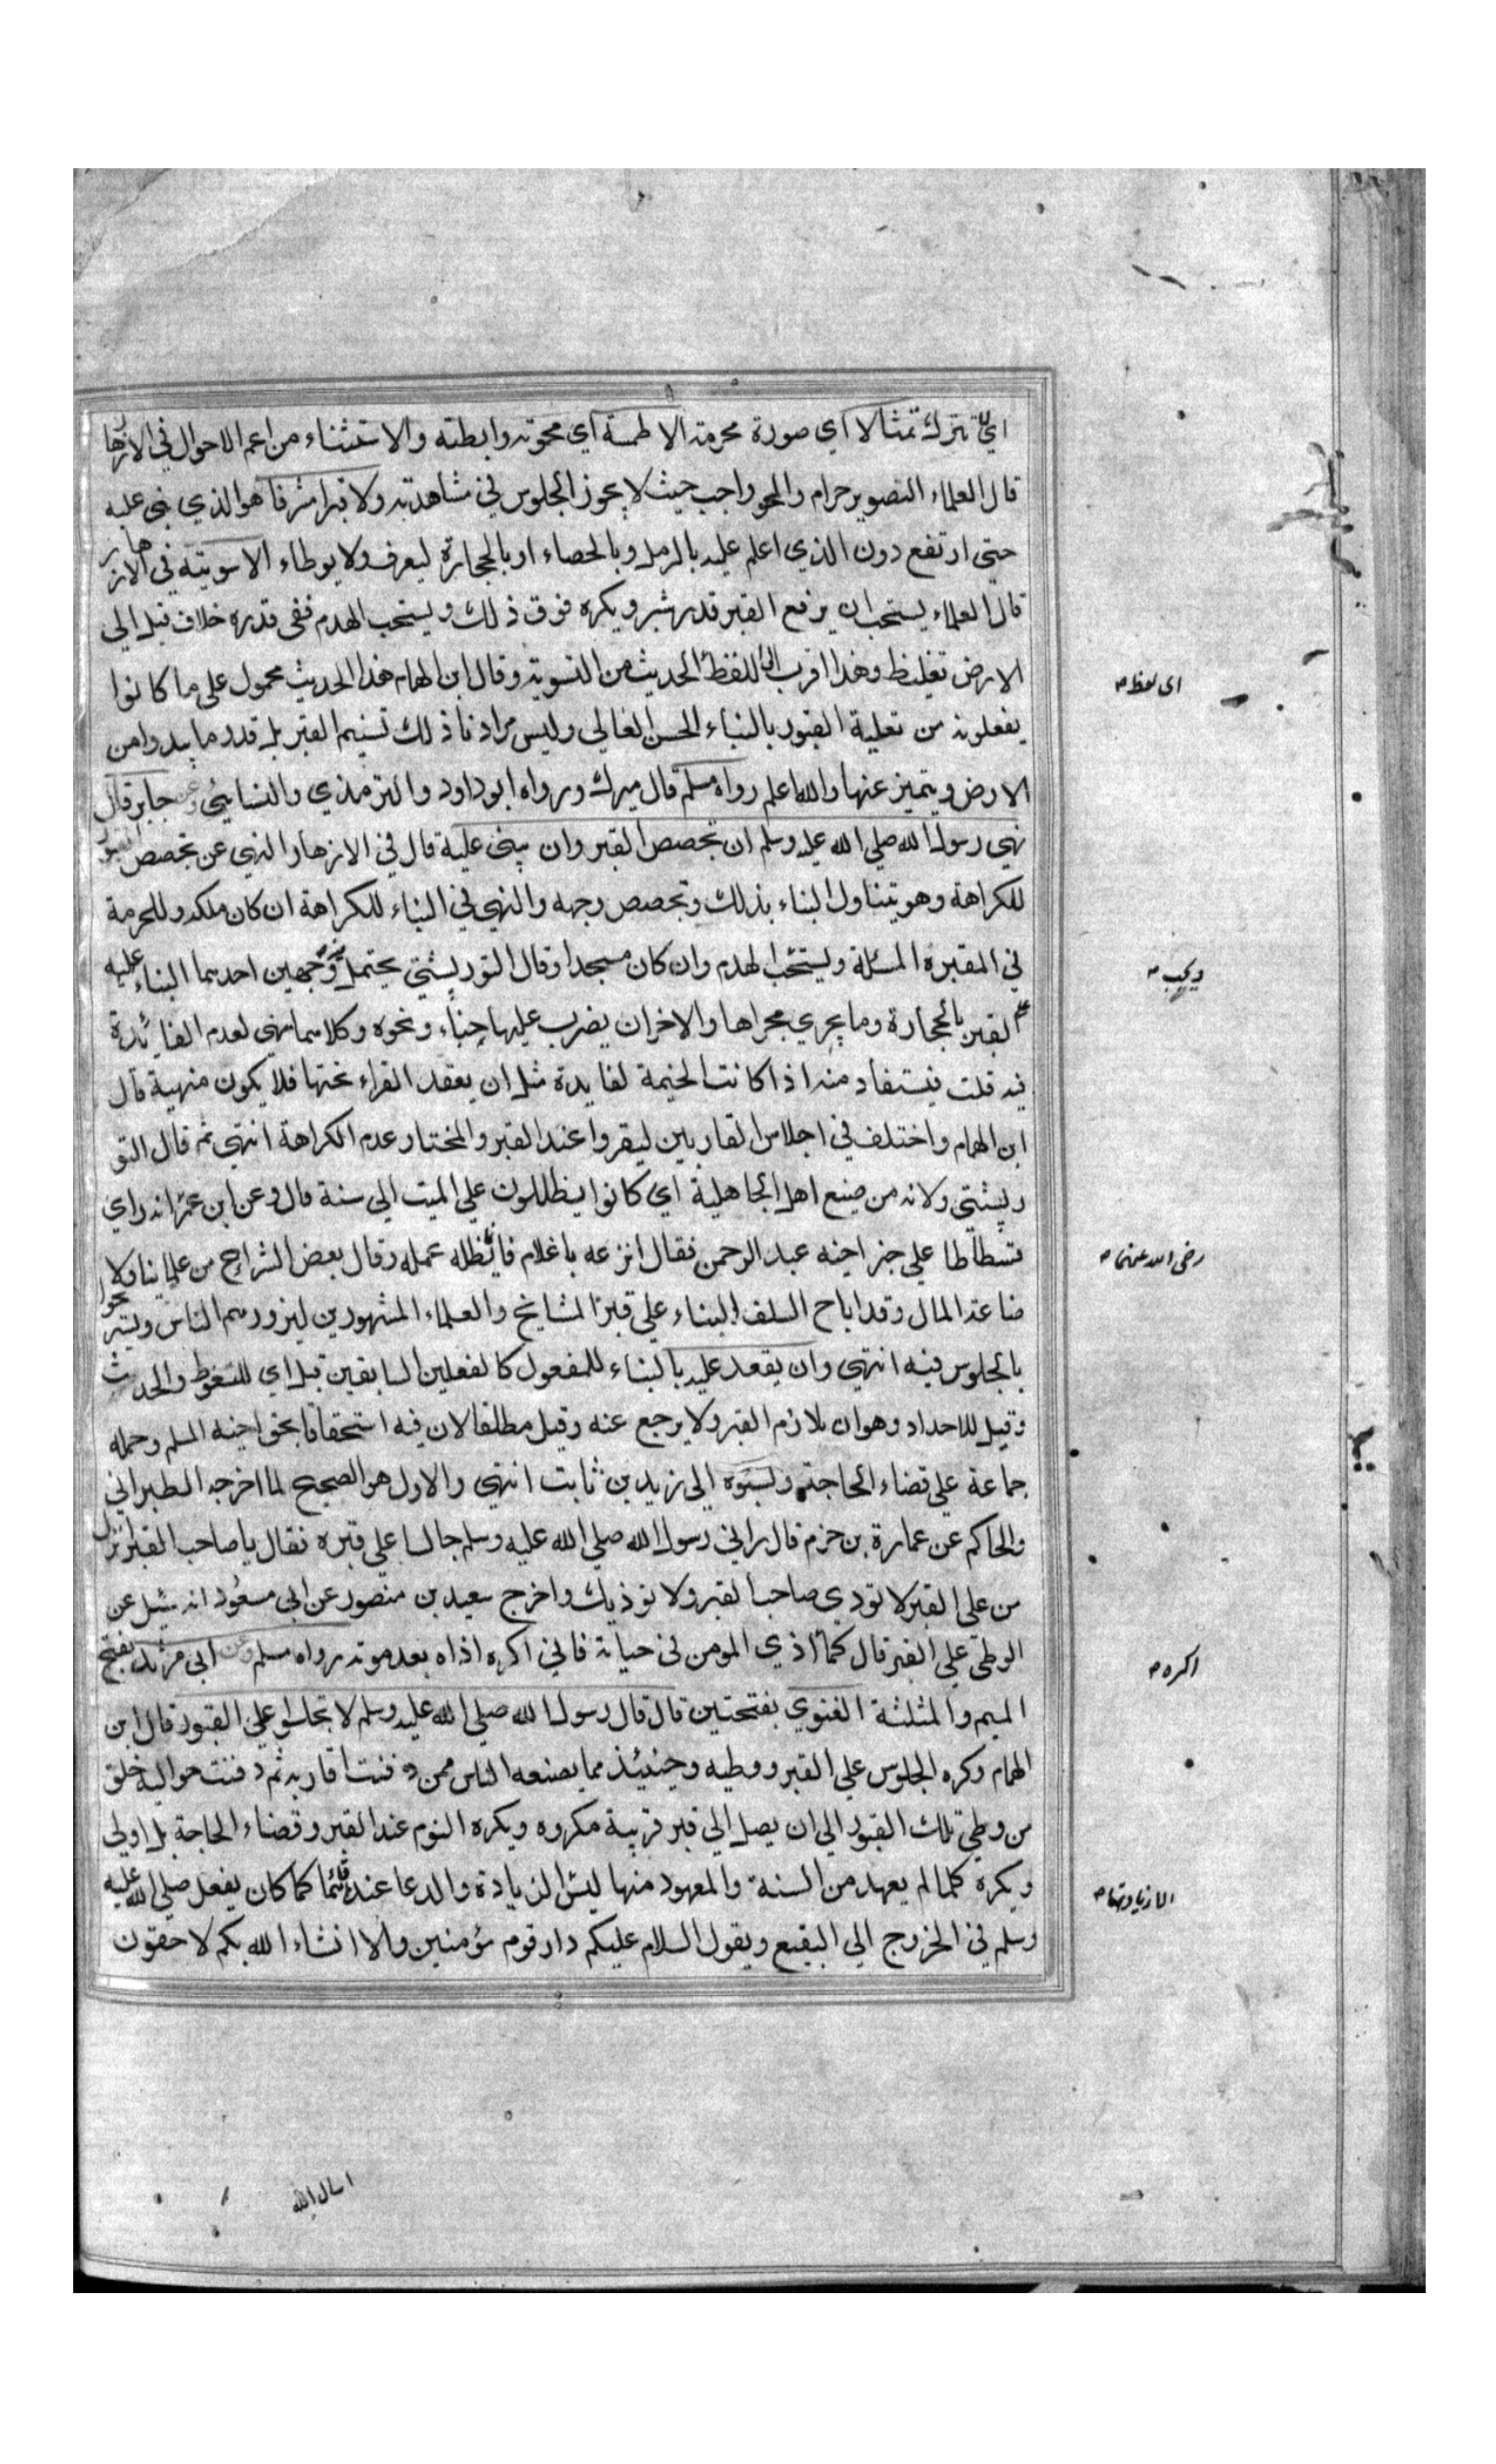 اي لا تترك تمثالا اي صورة محرمة الا طمسة اي محوته وابطلته والاستثناء من اعم الاحوال في الازهار
قال العلماء التصوير حرام والمحو واجب حيث لا يجوز الجلوس في مشاهدته ولا قبرا مشرفا هو الذي بنى عليه
حتى ارتفع دون الذي اعلم عليه بالرمل وبالحصاء او بالحجارة ليعرف ولا يوطاء الا سويته في الازهار
قال العلماء يستحب ان يرفع القبر قدر شبر ويكره فوق ذلك ويستحب الهدم ففى قدره خلاف قيل الى
الارض تغليظ وهذا اقرب الى اللفظ الحديث من التسوية وقال ابن الهمام هذا الحديث محمول على ما كانوا
يفعلونه من تعلية القبور بالبناء الحسن العالي وليس مرادنا ذلك تسنيم القبر بل قدر ما يبدوا من
الارض ويتميز عنها والله اعلم رواه مسلم قال ميرك ورواه ابو داود والترمذي والنسائي وعن جابر قال
نهى رسول الله صلى الله عليه وسلم ان تجصص القبر وان يبنى عليه قال في الازهار والنهى عن تجصص القبور
للكراهة وهو يتناول البناء بذلك وتجصص وجهه والنهي في البناء للكراهة ان كان ملكه وللحرمة
في المقبرة المسبلة ويستحب الهدم وان كان مسجدا وقال التوربشتي يحتمل وجهين احدهما البناء عليه
لقبر بالحجارة وما يجري مجراها والاخر ان يضرب عليها خباء ونحوه وكلاهما نهى لعدم الفائدة
فيه قلت فيستفاد منه اذا كانت الخيمة لفايدة مثل ان يقعد القراء تحتها فلا يكون منهية قال
ابن الهمام واختلف في اجلاس القاريين ليقروا عند القبر والمختار عدم الكراهة انتهى ثم قال التو
ربشتي ولانه من صنيع اهل الجاهلية اي كانوا يظللون على الميت الى سنة قال وعن ابن عمر انه راى
فسطاطا على اخيه عبد الرحمن فقال انزعه يا غلام فانما يظله عمله وقال بعض الشراح من علماينا ولا
ضاعة المال وقد اباح السلف البناء على قبر المشايخ والعلماء المشهورين ليزورهم الناس ويستريحوا
بالجلوس فيه انتهى وان يقعد عليه بالبناء للمفعول كالفعلين السابقين قيل اي للتغوط والحدث
وقيل للاحداد وهو ان يلازم القبر ولا يرجع عنه وقيل مطلقا لان فيه استحقاقا بحق اخيه المسلم وحمله
جماعة على قضاء الحاجة ونسبوه الى زيد بن ثابت انتهى والاول هو الصحيح لما اخرجه الطبراني
والحاكم عن عمارة بن حزم قال راني رسول الله صلى الله عليه وسلم جالسا على قبره فقال يا صاحب القبر انزل
من على القبر لا تودي صاحب القبر ولا توذيك واخرج سعيد بن منصور عن ابى مسعود انه سئل عن
الوطئ على القبر قال كما اذي المومن في حياته فاني اكره اذاه بعد موته رواه مسلم وعن ابى مرثد بفتح
الميم والمثلثة الغنوي بفتحتين قال قال رسول الله صلى الله عليه وسلم لا تجلسوا على القبور قال ابن
الهمام وكره الجلوس على القبر ووطيه وحينئذ مما يصنعه الناس ممن دفنت اقاربه ثم دفنت حواليه خلق
من وطي تلك القبور الى ان يصل الى قبر قريبه مكروه ويكره النوم عند القبر وقضاء الحاجة بل اولى
ويكره كلما لم يعهد من السنة والمعهود منها ليس الزيادة والدعا عندها قائما كما كان يفعل صلى الله عليه
وسلم في الخروج الى البقيع ويقول السلام عليكم دار قوم مؤمنين والا انشاء الله بكم لاحقون
اى لفظ
ويجب
رضى الله عنهما
اكره
الا زيارتها
اسال الله